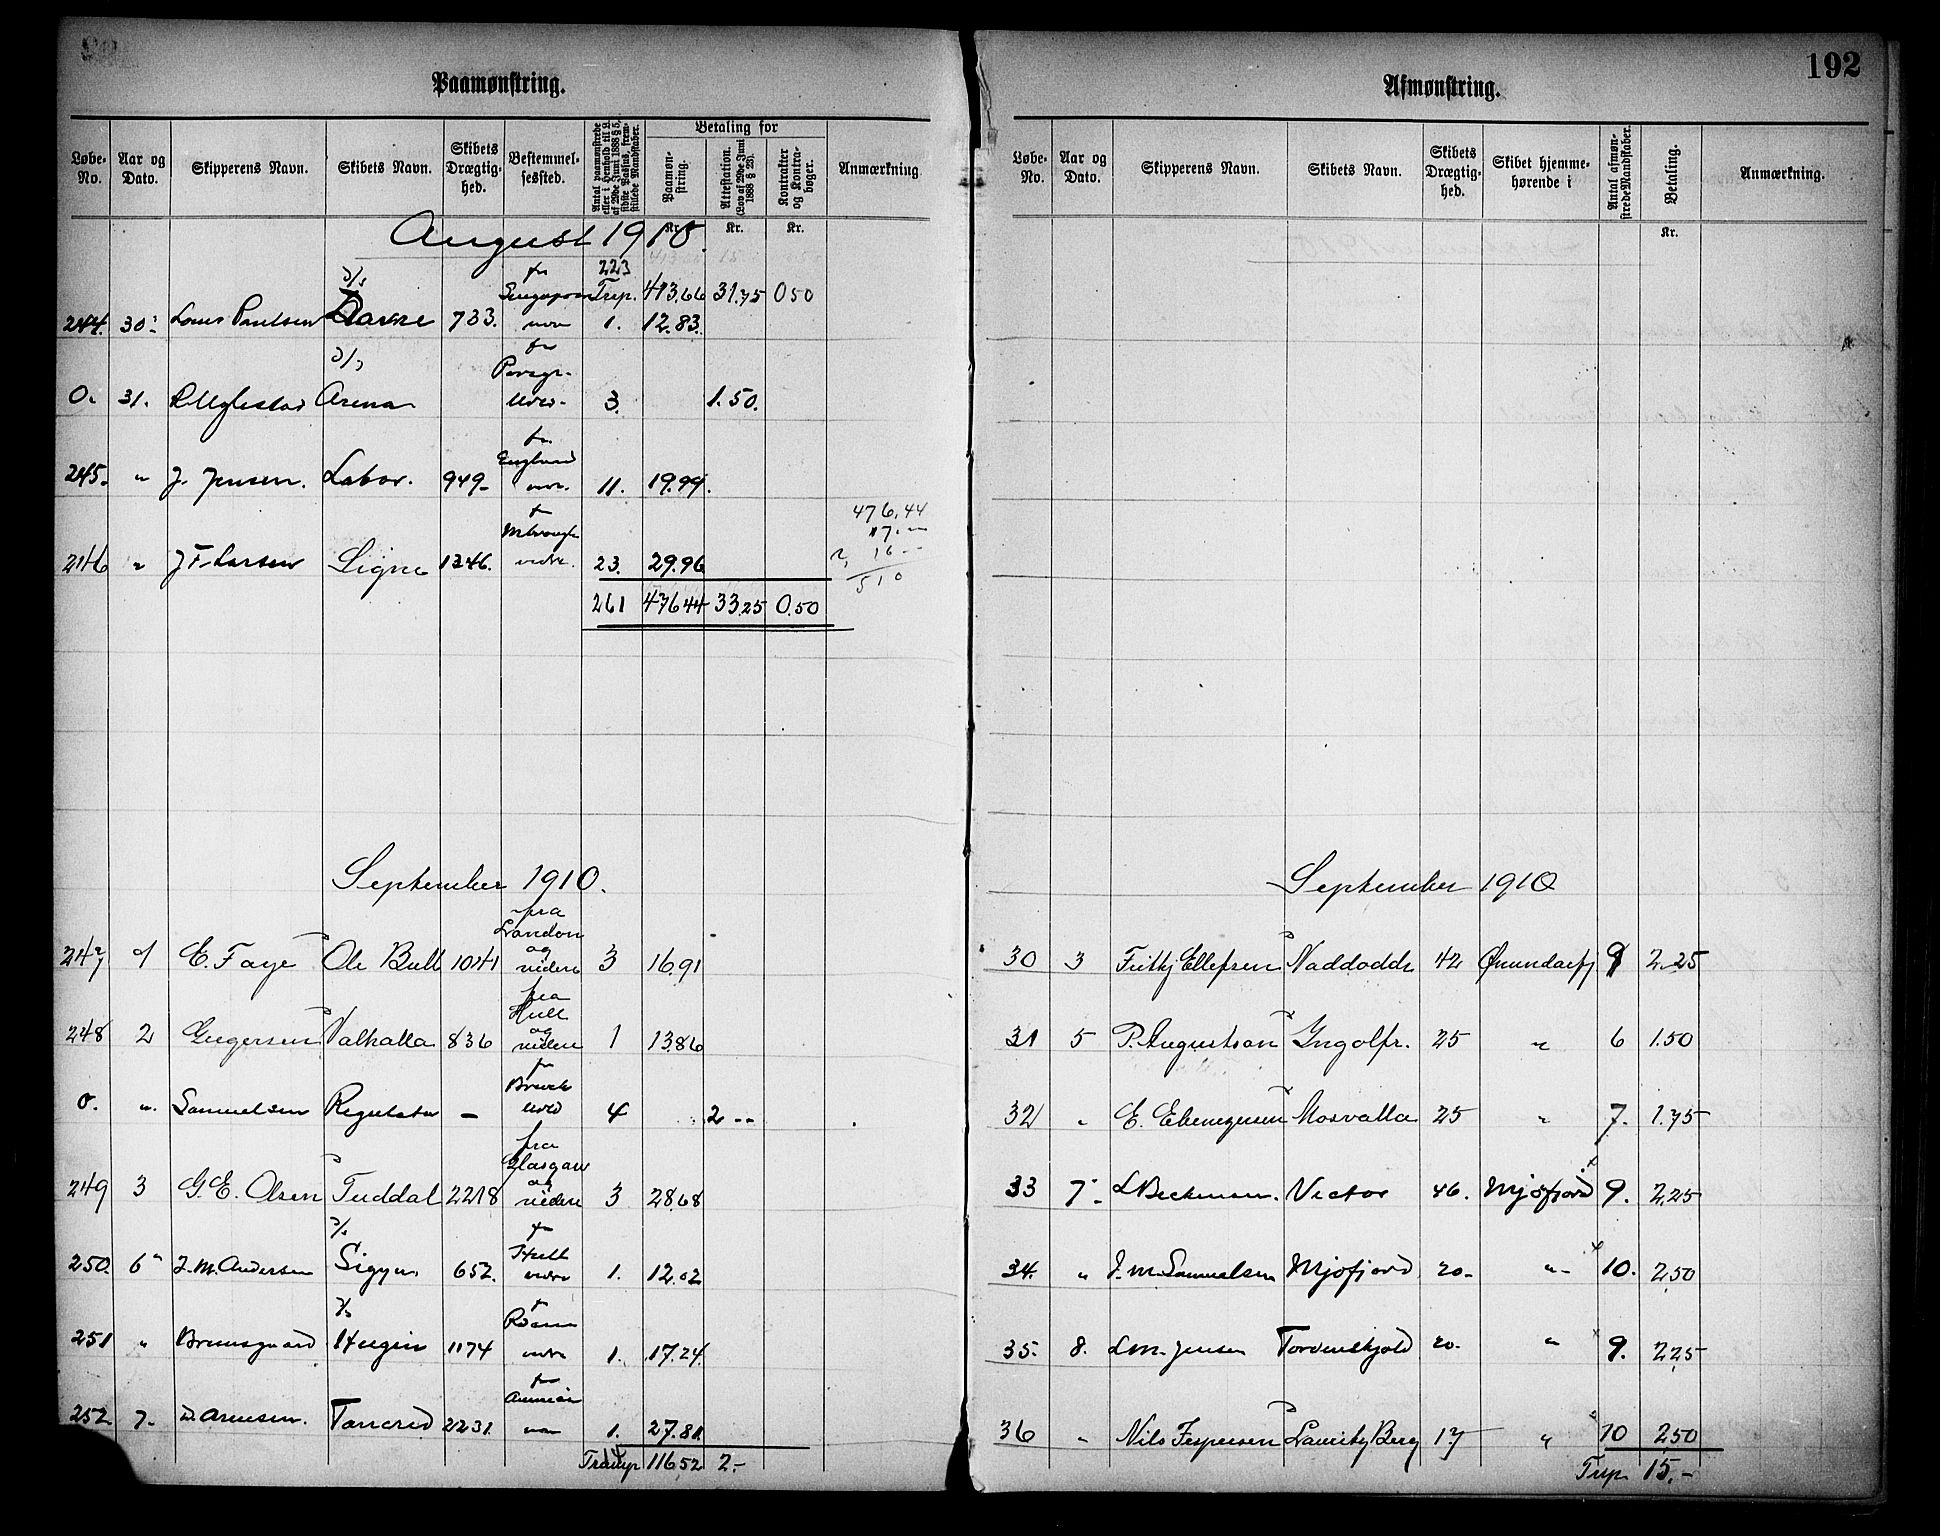 192
Paamønstring.
Løbe-No. Aar og Dato. Skipperens Navn. Skibets Navn. Skibets Drægtighed. Bestemmelsessted. Antal paamønstrede eller i Henhold til L. af 29de Juni 1888 § 5, sidste Passus, fremstillede Mandskaber. Betaling for Paamønstring. Attestation. (Lov af 29de Juni 1888 § 23). Kontrakter og Kontrabøger. Anmærkning
Kr. Kr. Kr.
August 1910.
223
Trsp. 413.66 31.75 0 50
244. 30. Louis Paulsen D/s 733. 1. 12.83.
0. 31. D/s Arena 3. 1.50.
245. " J. Jensen. Labor. 949. fr. England 11. 19.99.
246 " J F Larsen Signe 1346. 23. 29.96
476,44
17.—
16 —
510
261 476 44 33.25 0.50
September 1910.
247 1 E. Faye Ole Bull 1041 fra London og videre 3 16.91
248 2 Valhalla 836 fra Hull og videre 1 13.86
0. " Samuelsen Regulator — 4 2 --
249 3 G. E. Olsen Tuddal 2218 fra Glasgow og videre 3 28.68
250. 6 J. M. Andersen D/s Sigyn 652. 1. 12.02
251 " Bruusgaard D/s Hugin 1174 1. 17.24.
252 7. Tancred 2231. 1. 27.81.
14
Transp 116 52 2.-
Afmønstring.
Løbe-No. Aar og Dato. Skipperens Navn. Skibets Navn. Skibets Drægtighed. Skibet hjemmehørende i Antal afmønstrede Mandskaber. Betaling. Anmærkning.
Kr.
September 1910
30 3 Ellefsen Naddodd 42 9 2.25
31 5 P. Augustson Ingolfr. 25 " 6 1.50
32 " E. Ebenezersen Mosvalla 25 " 7. 1.75
33 7. Victor 46. Mjofjord 9. 2.25
34. " J. M. Samuelsen Mjofjord 20. " 10. 2.50
35. 8. L M. Jensen Tordenskjold 20. " 9. 2.25
36 " Nils Jespersen Lauritz Berg 17 " 10 2.50
Trsp 15.-